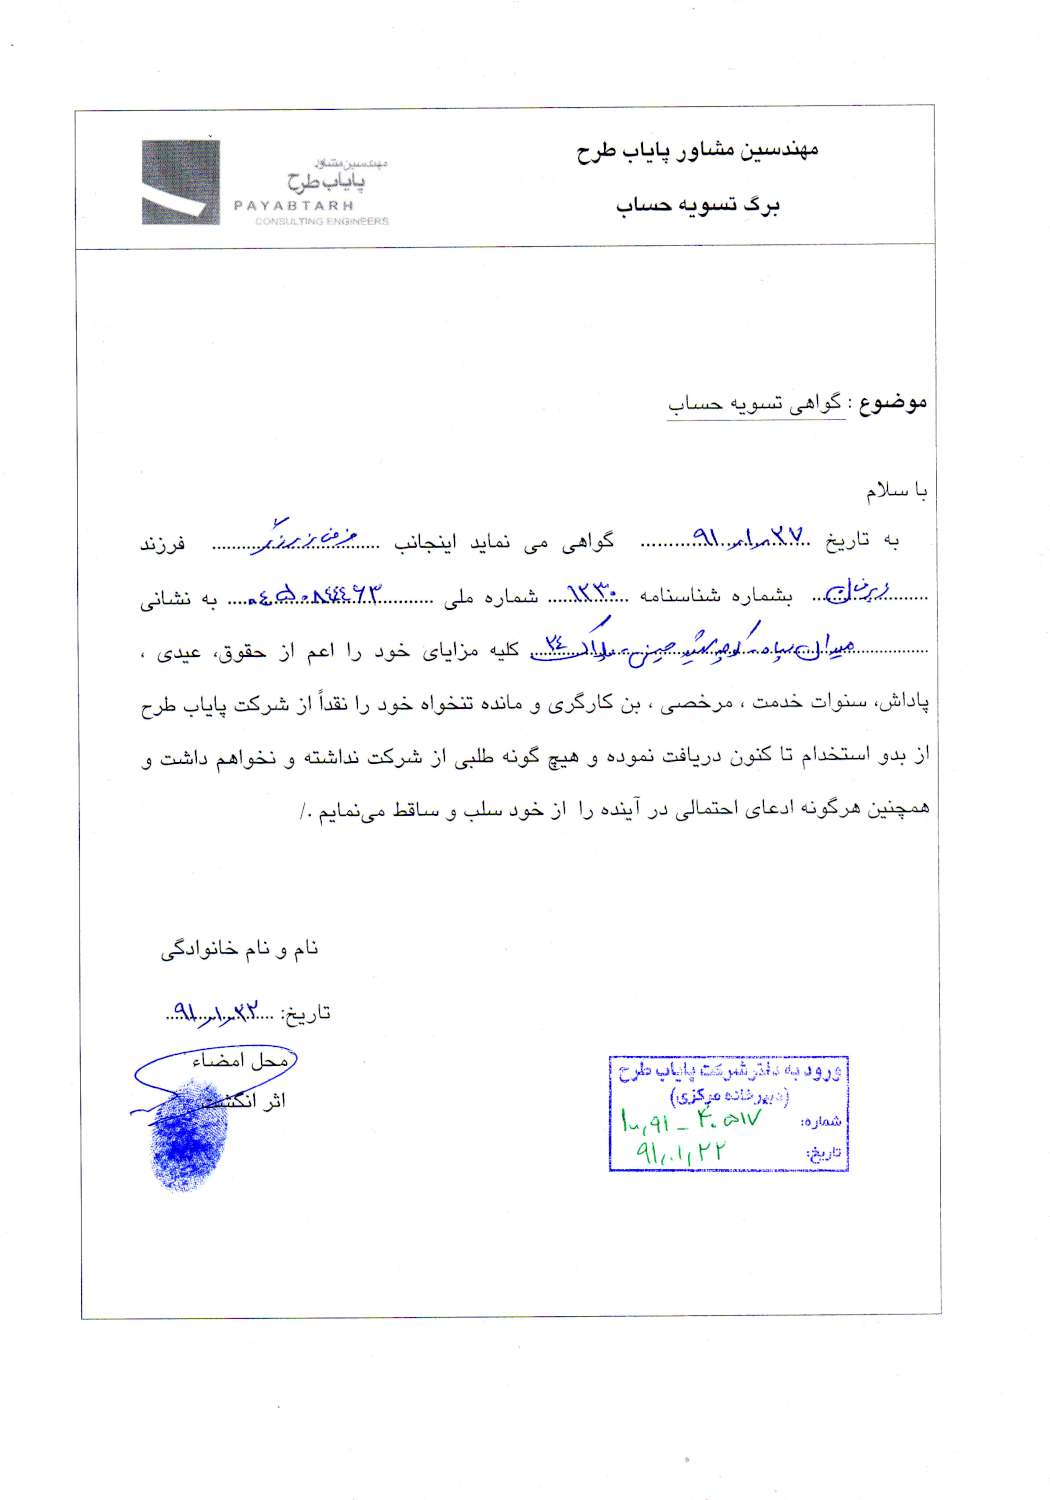 مهندسین مشاور پایاب طرح
برگ تسویه حساب
مهندسین مشاور
پایاب طرح
PAYABTARH
CONSULTING ENGINEERS
موضوع : گواهی تسویه حساب
با سلام
به تاریخ ... گواهی می نماید اینجانب ... فرزند
... بشماره شناسنامه ...۱۲۳۰... شماره ملی ... به نشانی
... پلاک ۲۴ کلیه مزایای خود را اعم از حقوق، عیدی ،
پاداش، سنوات خدمت ، مرخصی ، بن کارگری و مانده تنخواه خود را نقداً از شرکت پایاب طرح
از بدو استخدام تا کنون دریافت نموده و هیچ گونه طلبی از شرکت نداشته و نخواهم داشت و
همچنین هرگونه ادعای احتمالی در آینده را از خود سلب و ساقط می‌نمایم ./
نام و نام خانوادگی
تاریخ: ...
محل امضاء
اثر انگشت
ورود به دفتر شرکت پایاب طرح
(دبیرخانه مرکزی)
شماره:
تاریخ: ۹۱,۰۱,۲۲